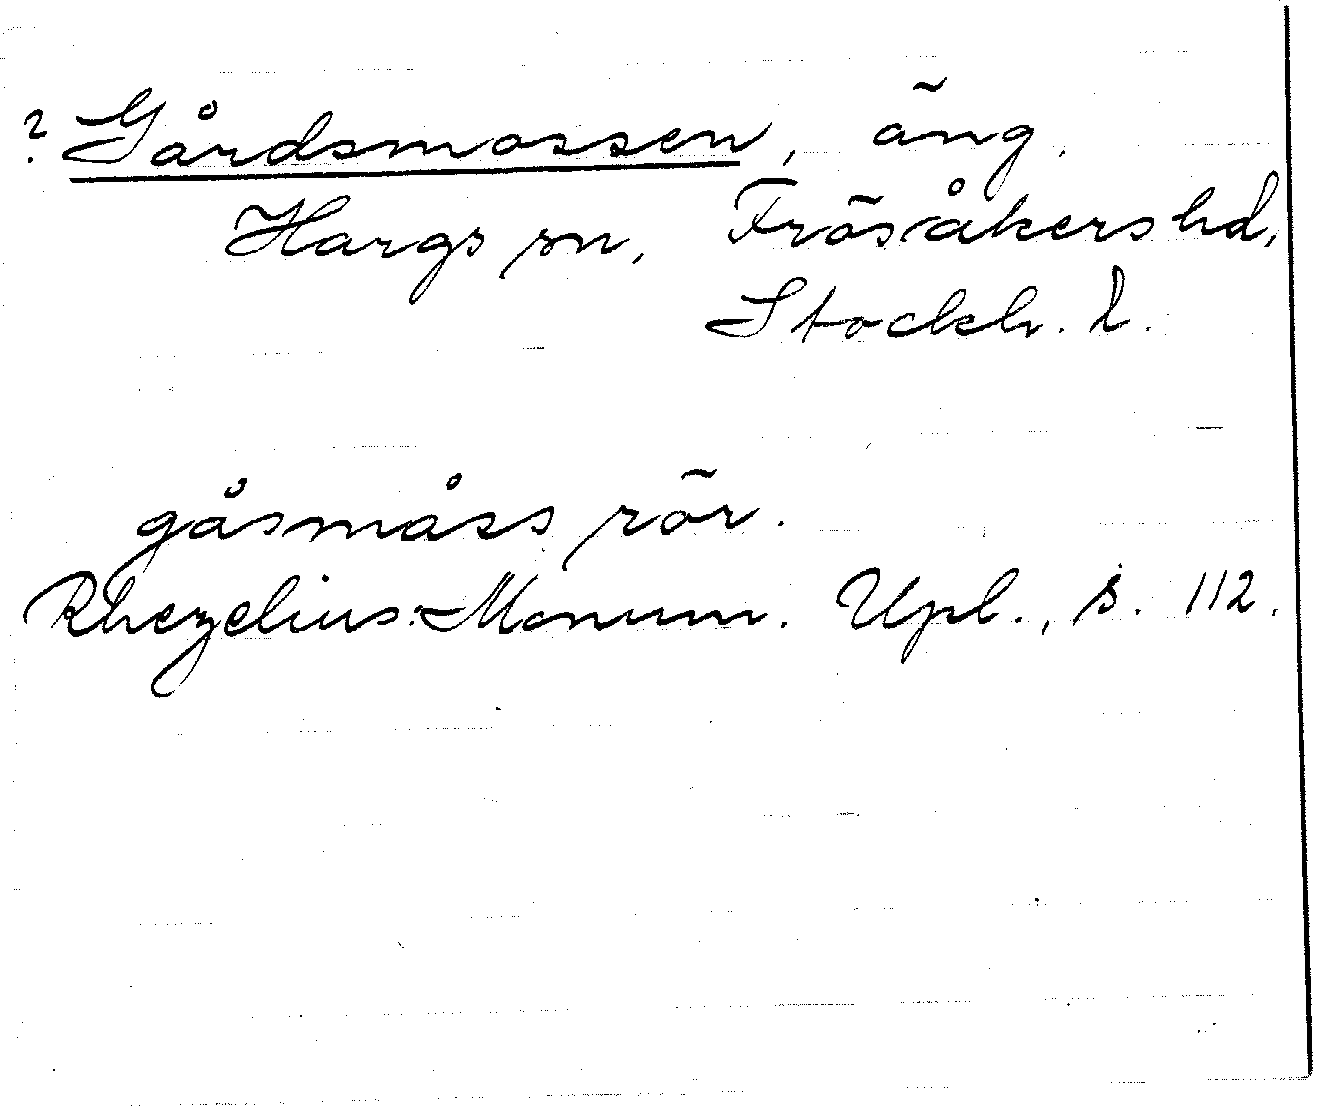 ? Gårdsmossen, äng.
Hargs sn, Frösåkers hd,
Stockh. l.
gåsmåss rör.
Rhezelius: Monum. Upl., s. 112.